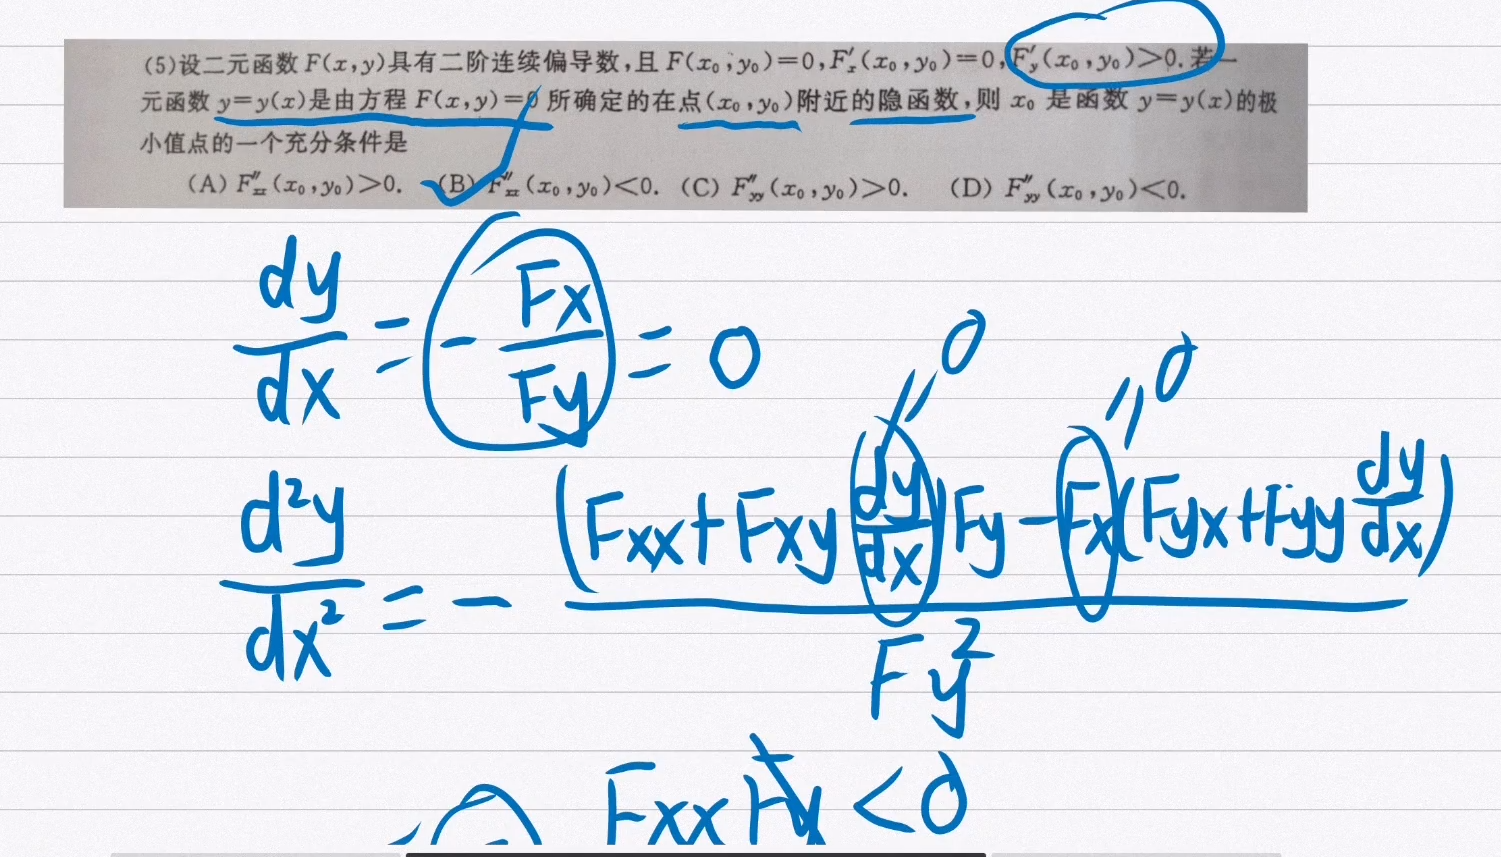 (5)设二元函数 F(x,y)具有二阶连续偏导数,且 F(x₀,y₀)=0,F′ₓ(x₀,y₀)=0,F′ᵧ(x₀,y₀)>0.若一
元函数 y=y(x)是由方程 F(x,y)=0 所确定的在点(x₀,y₀)附近的隐函数,则 x₀ 是函数 y=y(x)的极
小值点的一个充分条件是
(A) F″xx(x₀,y₀)>0. (B) F″xx(x₀,y₀)<0. (C) F″yy(x₀,y₀)>0. (D) F″yy(x₀,y₀)<0.
dy/dx = - Fx/Fy = 0
=0 =0
d²y/dx² = - (Fxx+Fxy dy/dx)Fy-Fx(Fyx+Fyy dy/dx) / Fy²
Fxx Fy <0